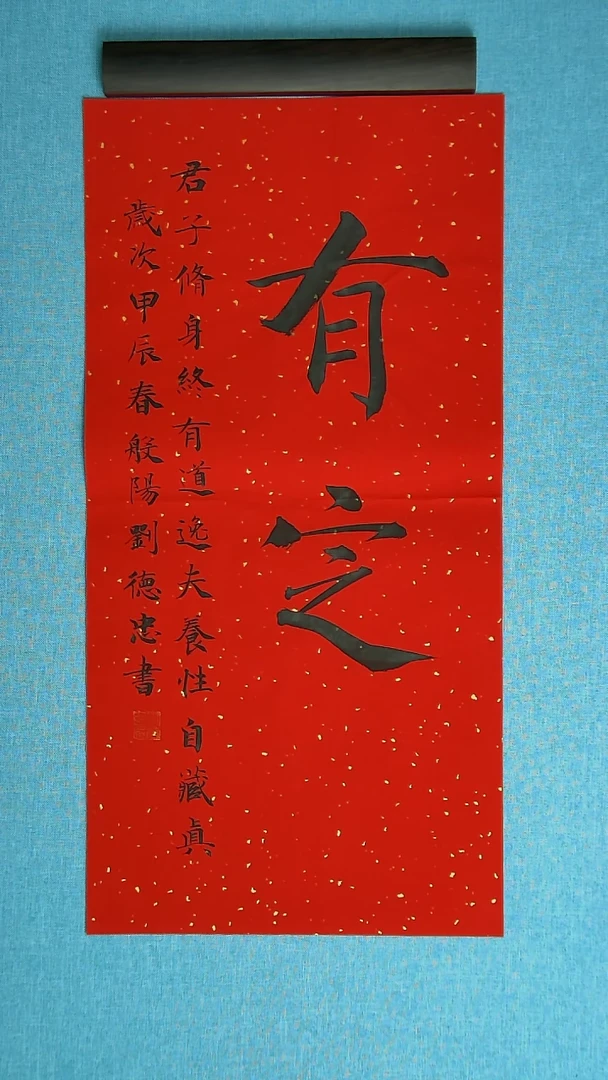 有定
君子脩身終有道逸夫養性自藏真
歲次甲辰春般陽劉德忠書